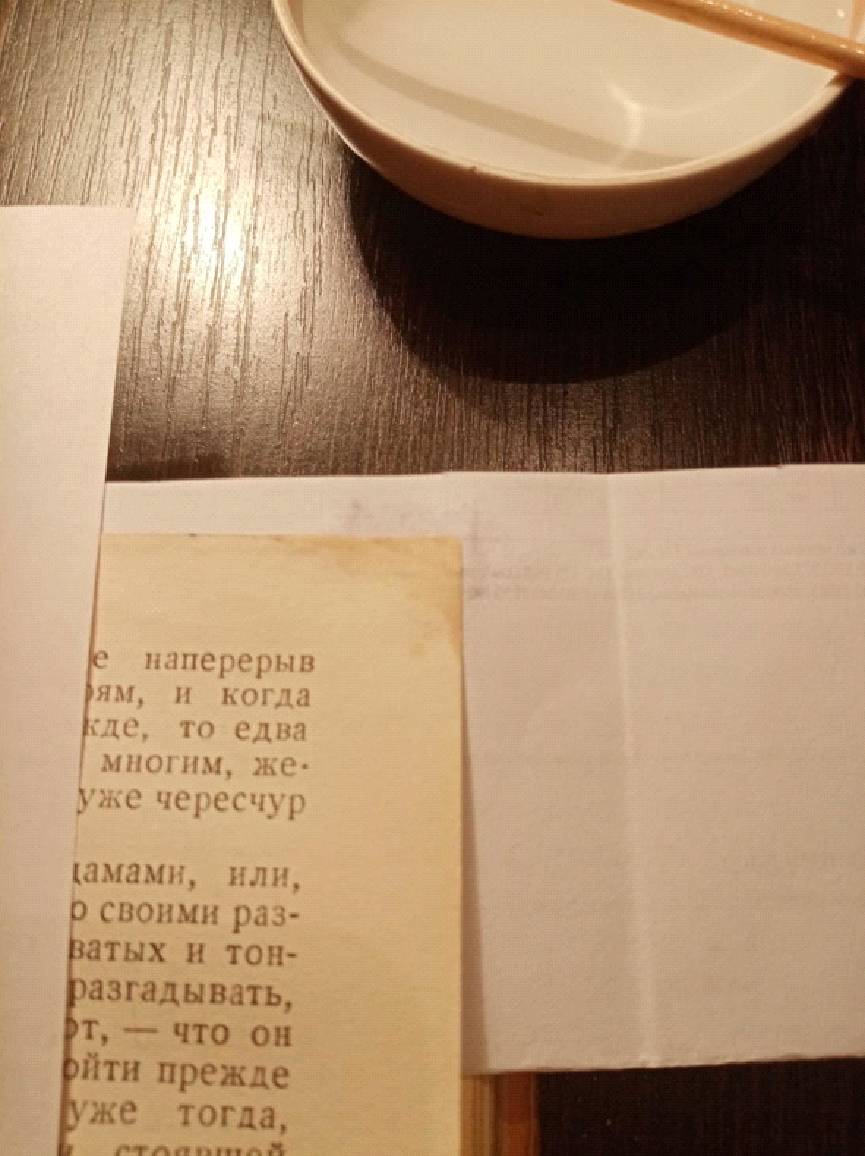 е наперерыв
рям, и когда
жде, то едва
многим, же-
уже чересчур
дамами, или,
о своими раз-
ватых и тон-
разгадывать,
от, — что он
ойти прежде
уже тогда,
стоявшей